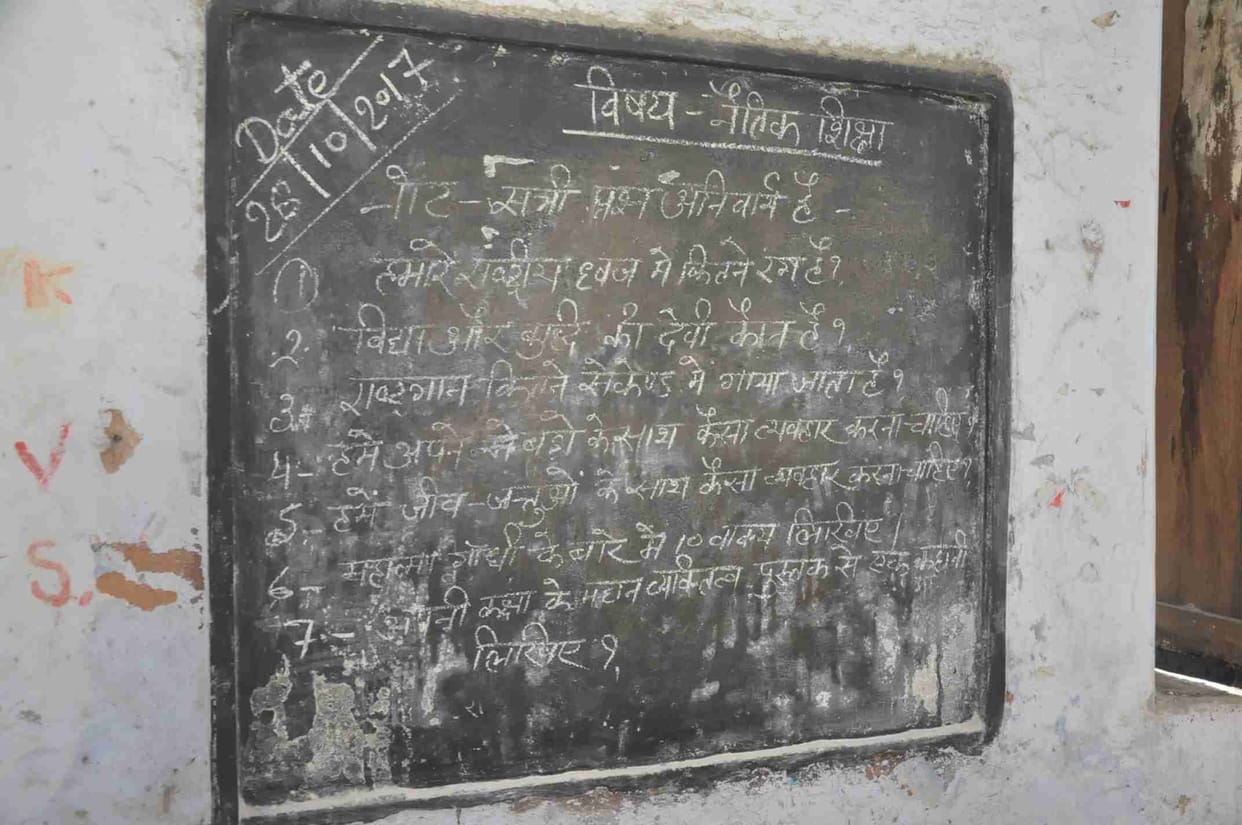 Date
28/10/2017
विषय - नैतिक शिक्षा
नोट - सभी प्रश्न अनिवार्य है -
① हमारे राष्ट्रीय ध्वज मे कितने रंग है?
2. विद्या और बुद्दि की देवी कौन है?
3. राष्ट्रगान कितने सेकेण्ड मे गाया जाता है?
4- हमे अपने से बडो के साथ कैसा व्यवहार करना चाहिए?
5.- हमें जीव-जन्तुओं के साथ कैसा व्यवहार करना चाहिए?
6- महात्मा गाँधी के बारे में 10 वाक्य लिखिए।
7- अपनी कक्षा के महान व्यक्तित्व पुस्तक से एक कहानी
लिखिए?
K
V
S.